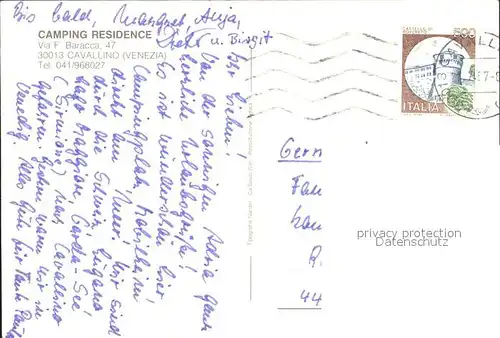 Bis bald, Margret, Anja,
Dieter u. Birgit
CAMPING RESIDENCE
Via F. Baracca, 47
30013 CAVALLINO (VENEZIA)
Tel. 041/968027
Ihr Lieben!
Von der sonnigen Adria ganz
herzliche Urlaubsgrüße!
Es ist wunderschön hier
Campingplatz, Mobilheim
direkt am Meer! Wir sind
durch die Schweiz, Lugano
Lago Maggiore, Garda-See
(Sirmione) nach Cavallino
gefahren. Gestern waren wir in
Venedig. Alles Gute für Tante
500
ITALIA
Gern
Fam
R.
44
privacy protection
Datenschutz